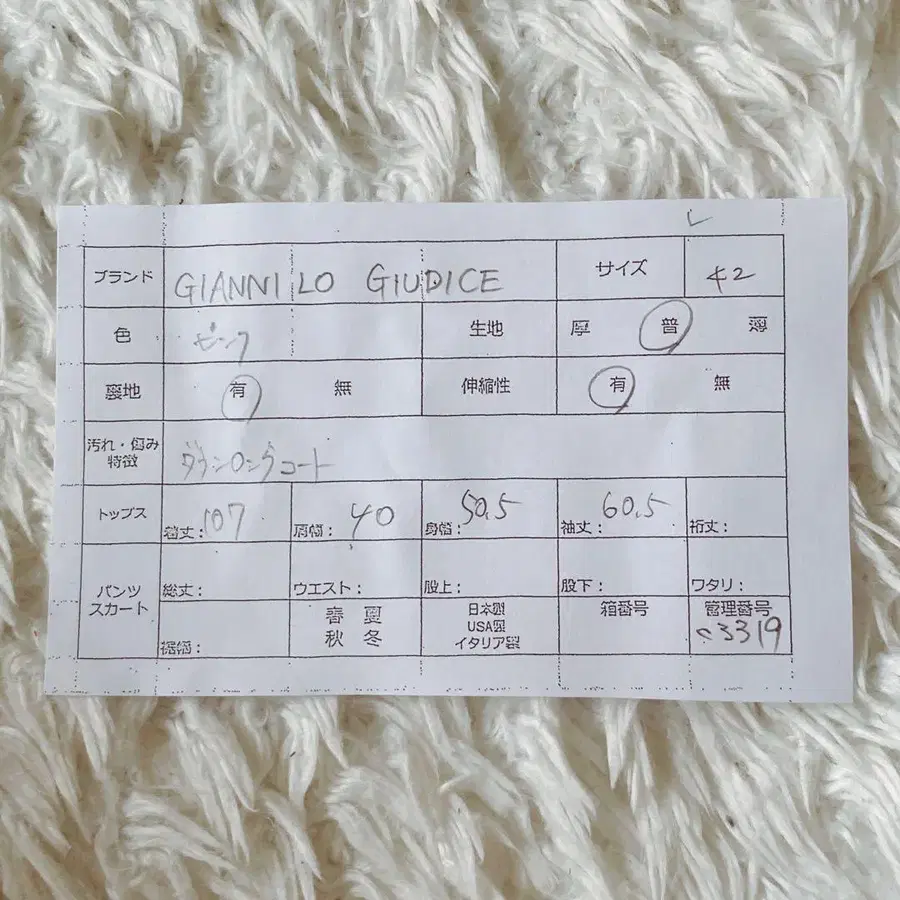 ブランド GIANNI LO GIUDICE サイズ 42
色 ピンク 生地 厚 普 薄
裏地 有 無 伸縮性 有 無
汚れ・傷み
特徴 ダウンロングコート
トップス 着丈: 107 肩幅: 40 身幅: 50.5 袖丈: 60.5 裄丈:
パンツ
スカート
総丈: ウエスト: 股上: 股下: ワタリ:
裾幅:
春 夏
秋 冬
日本製
USA製
イタリア製
箱番号
管理番号
3319